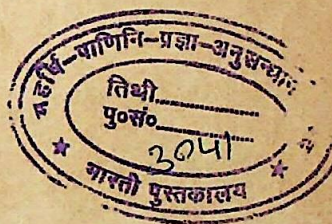 महर्षि-पाणिनि-प्रज्ञा-अनुसन्धान
तिथी
पु०सं०
3041
भारती पुस्तकालय